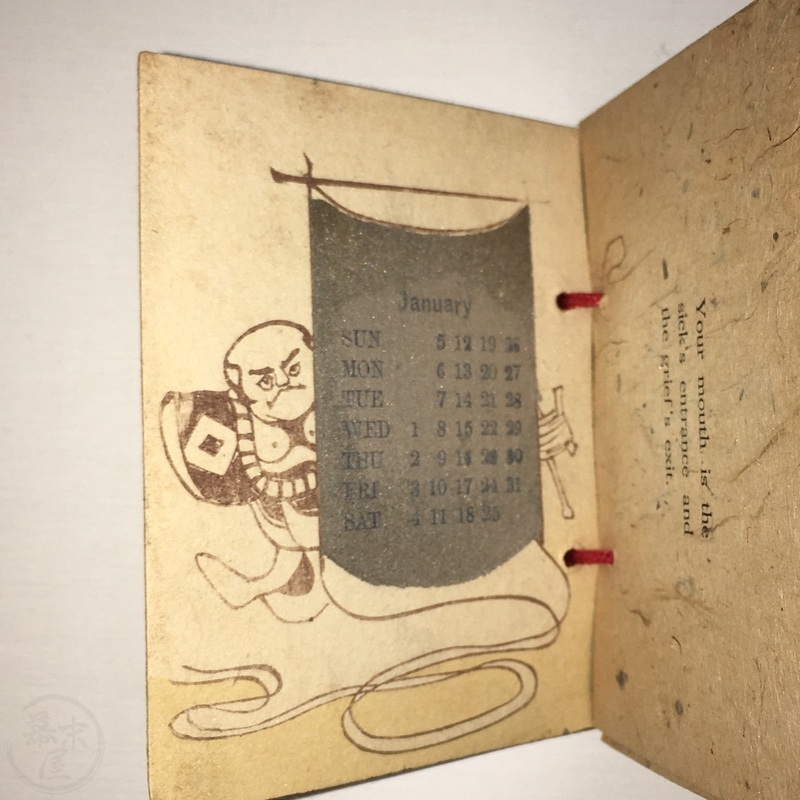 January
SUN 5 12 19 26
MON 6 13 20 27
TUE 7 14 21 28
WED 1 8 15 22 29
THU 2 9 16 23 30
FRI 3 10 17 24 31
SAT 4 11 18 25
Your mouth is the
sick's entrance and
the grief's exit.
幕末屋